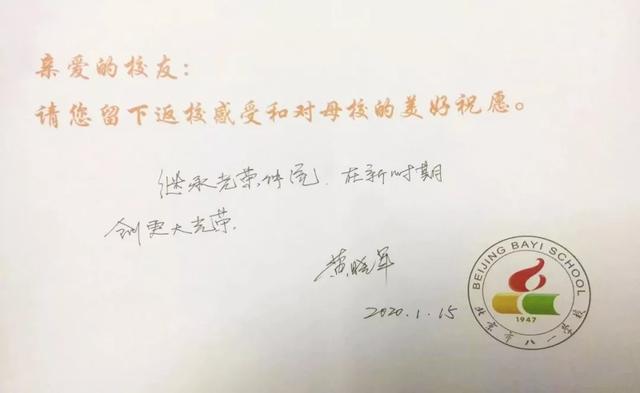 亲爱的校友：
请您留下返校感受和对母校的美好祝愿。
继承光荣传统，在新时期
创更大光荣.
黄晓军
2020.1.15
BEIJING BAYI SCHOOL
1947
北京市八一学校